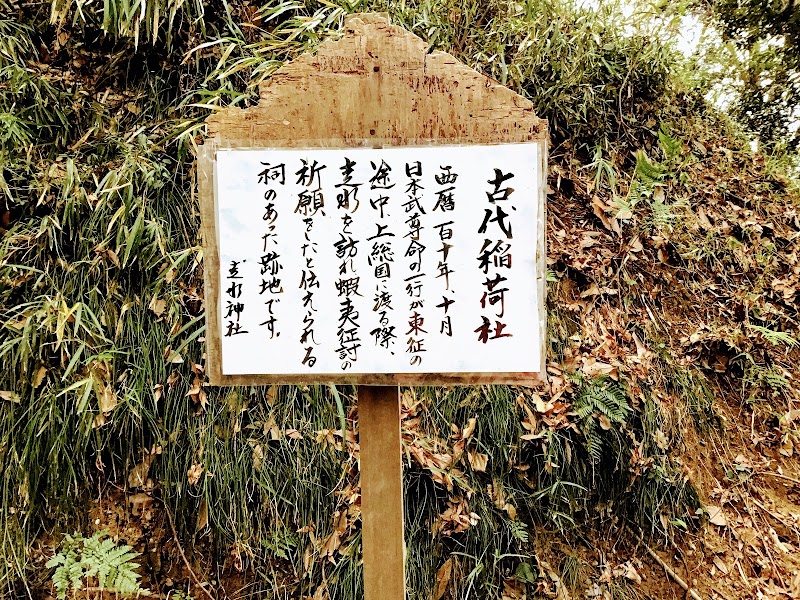 古代稲荷社
西暦百十年、十月
日本武尊命の一行が東征の
途中上総国に渡る際、
走水を訪れ蝦夷征討の
祈願をたと伝えられる
祠のあった跡地です。
走水神社